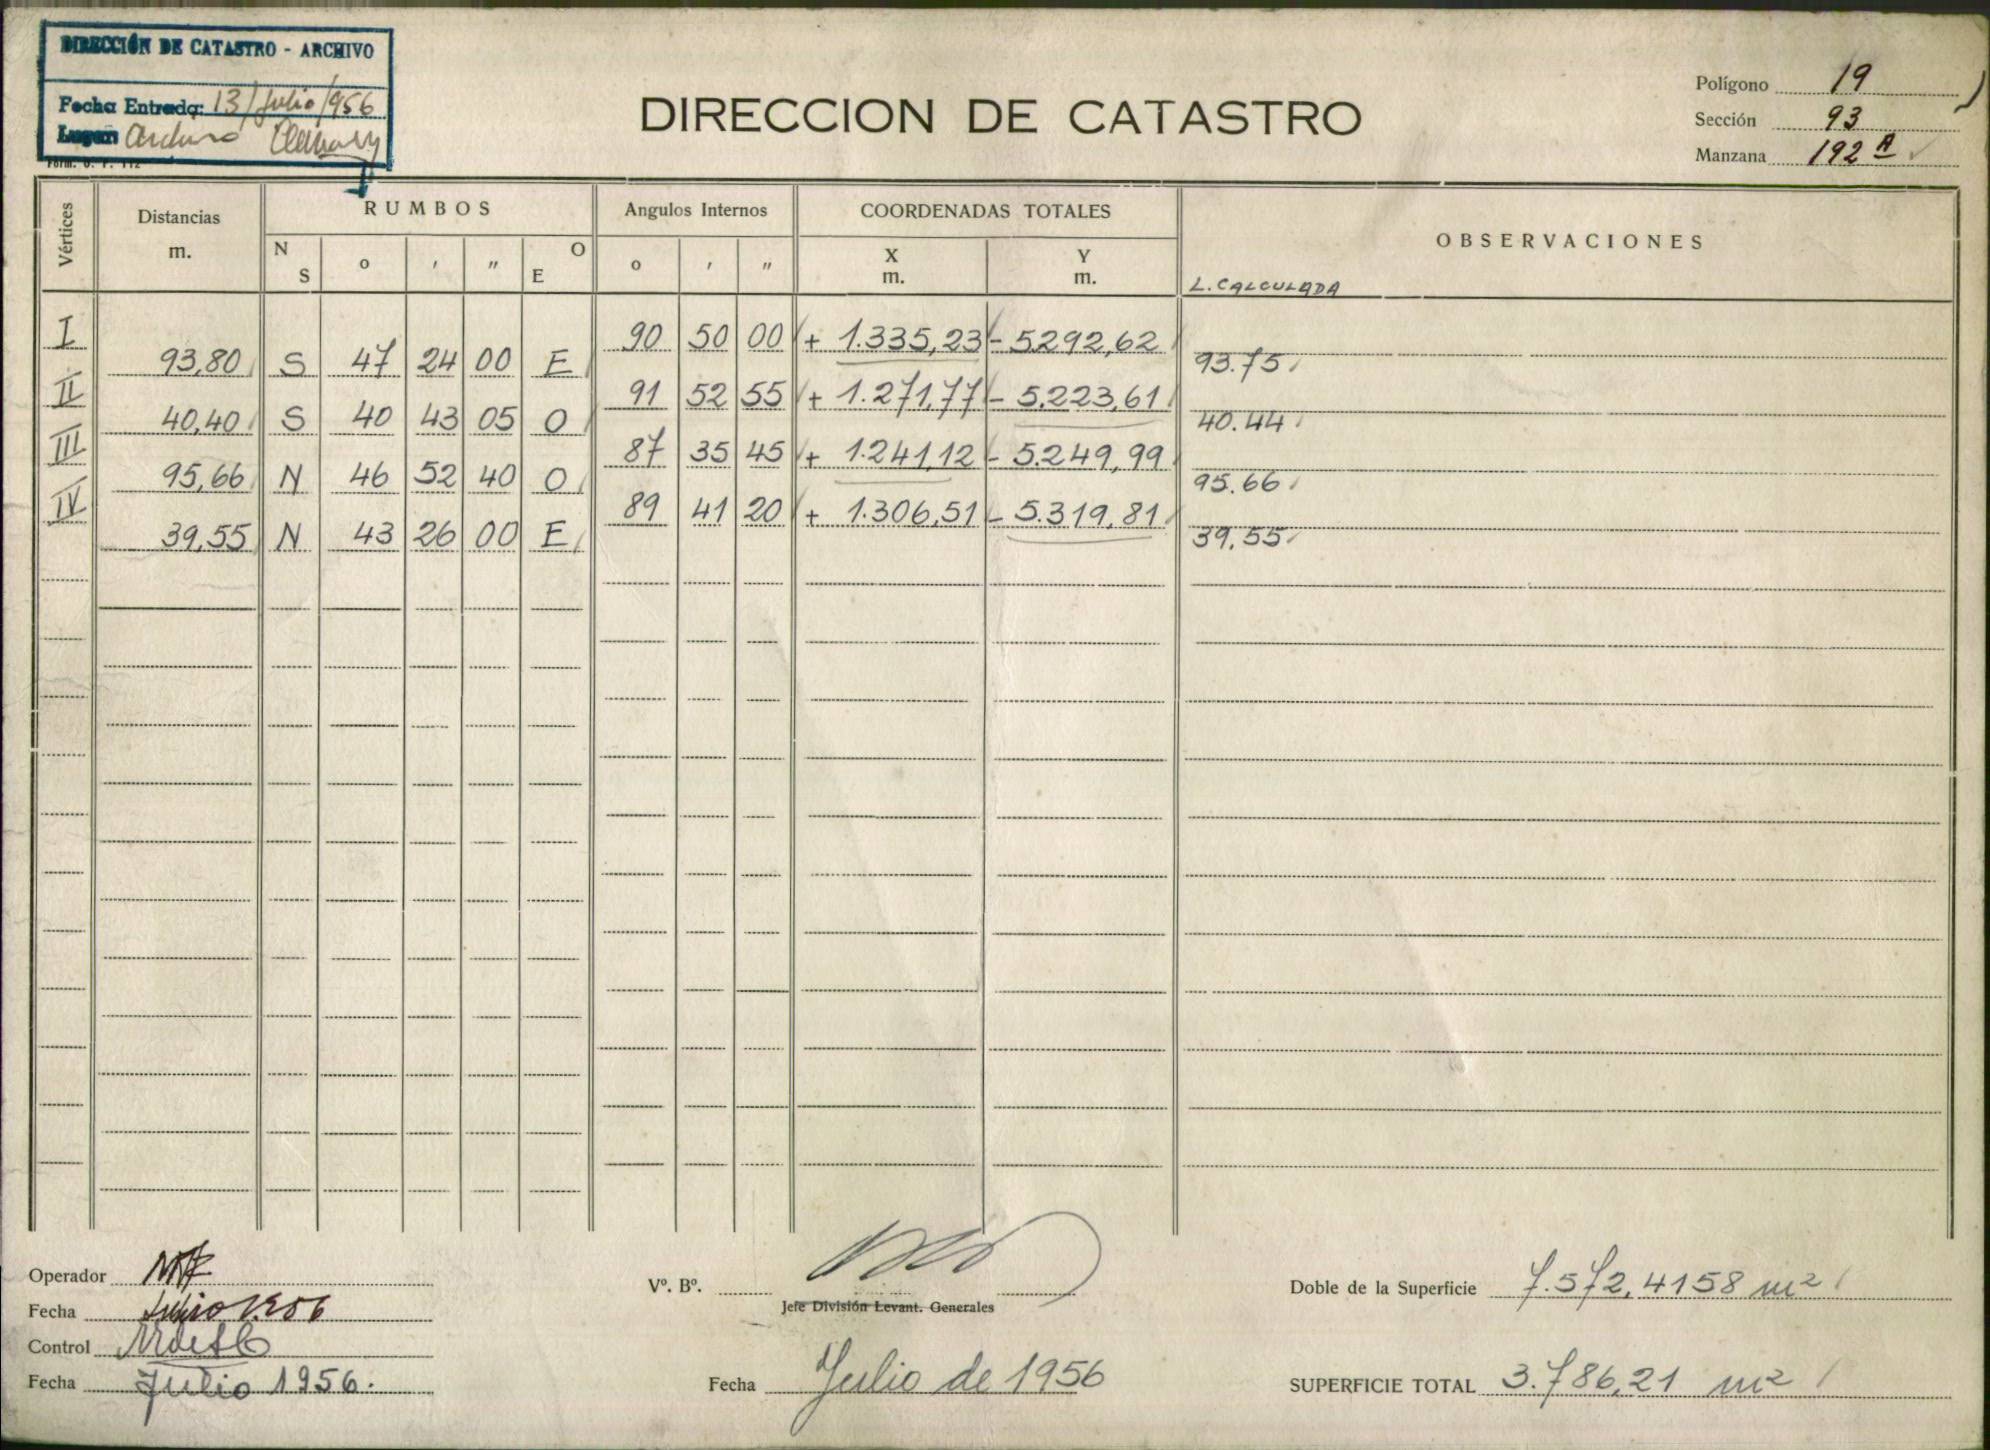 DIRECCIÓN DE CATASTRO - ARCHIVO
Fecha Entrada: 13/Julio/956
Lugar Arduro
Form. O. P. 112
DIRECCION DE CATASTRO
Polígono 19
Sección 93
Manzana 192 A
Vértices Distancias m. RUMBOS Angulos Internos COORDENADAS TOTALES OBSERVACIONES
N S o ' " O E o ' " X m. Y m. L. CALCULADA
I 90 50 00 + 1.335,23 - 5292,62
93,80 S 47 24 00 E 93.75
II 91 52 55 + 1.271,77 - 5.223,61
40,40 S 40 43 05 O 40.44
III 87 35 45 + 1.241,12 - 5.249,99
95,66 N 46 52 40 O 95.66
IV 89 41 20 + 1.306,51 - 5.319,81
39,55 N 43 26 00 E 39.55
Operador
Fecha Julio 1956
Control
Fecha Julio 1956.
Vº. Bº.
Jefe División Levant. Generales
Fecha Julio de 1956
Doble de la Superficie 7.572,4158 m2
SUPERFICIE TOTAL 3.786,21 m2